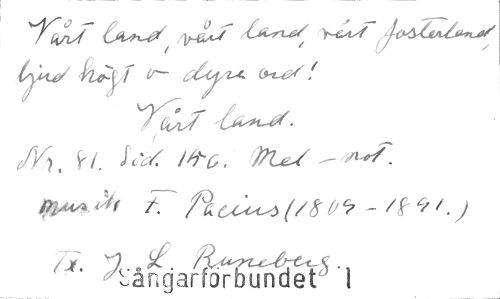 Vårt land, vårt land, vårt fosterland,
ljud högt o dyra ord!
Vårt land.
Nr. 81. Sid. 150. Mel-not.
musik F. Pacius (1809-1891.)
Tx. J L Runeberg.
Sångarförbundet 1